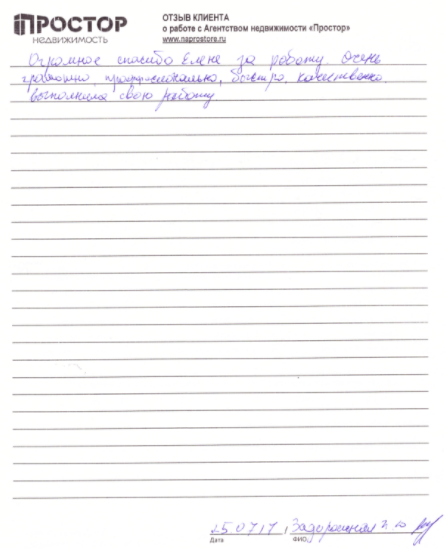 ПРОСТОР
НЕДВИЖИМОСТЬ
ОТЗЫВ КЛИЕНТА
о работе с Агентством недвижимости «Простор»
www.naprostore.ru
Огромное спасибо Елене за работу. Очень
грамотно, профессионально, быстро, качественно
выполнила свою работу.
25.07.17
Дата
ФИО